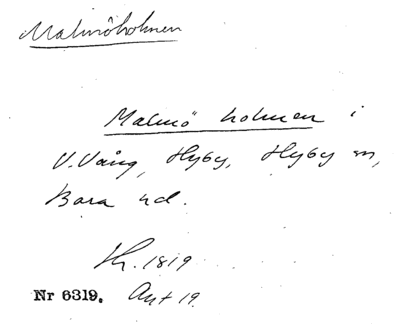 Malmöholmen
Malmö holmen i
V. Vång, Hyby, Hyby sn,
Bara hd.
Sk. 1819
Nr 6319. Akt 19.